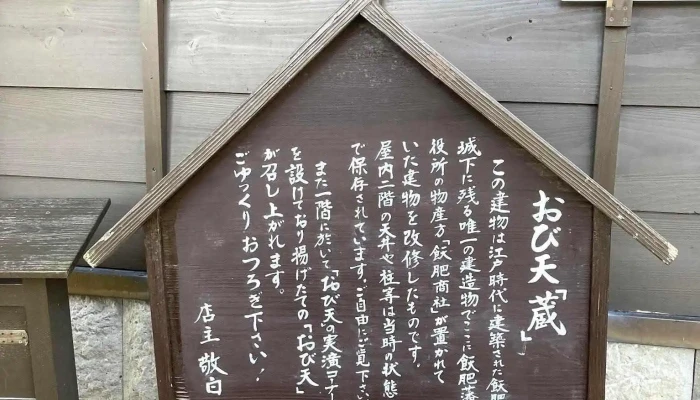 おび天「蔵」
この建物は江戸時代に建築された飫肥
城下に残る唯一の建造物でここに飫肥藩
役所の物産方「飫肥商社」が置かれて
いた建物を改修したものです。
屋内二階の天井や柱等は当時の状態
で保存されています。ご自由にご覧下さい
また一階に於いて「おび天の実演コーナ
を設けており揚げたての「おび天」
が召し上がれます。
ごゆっくりおつろぎ下さい！
店主 敬白